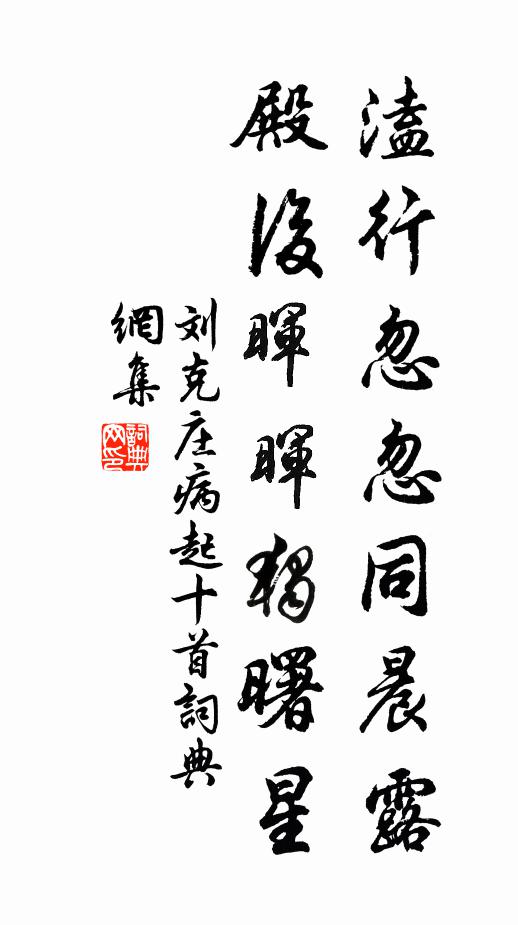 溘行忽忽同晨露
殿後暉暉獨曙星
刘克庄病起十首詞典
網集
詞典
网印